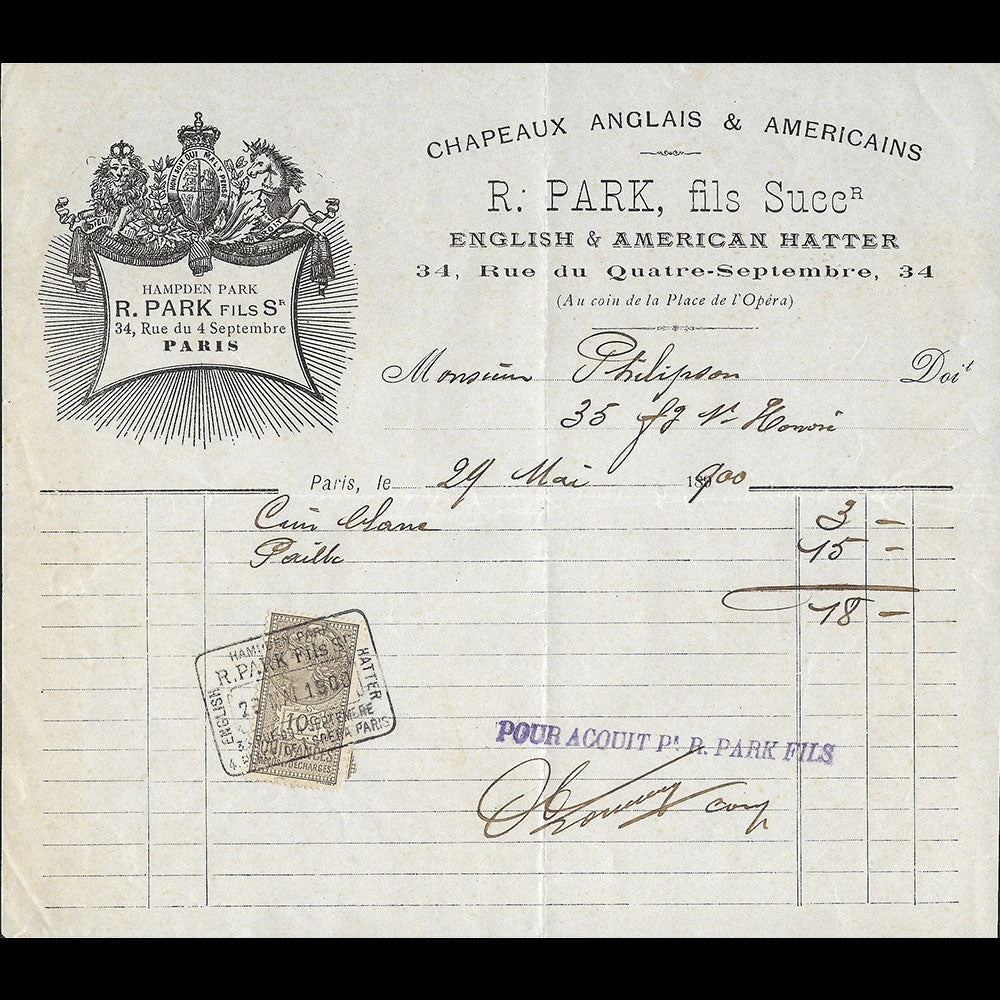 CHAPEAUX ANGLAIS & AMERICAINS
R. PARK, fils Succᴿ
ENGLISH & AMERICAN HATTER
34, Rue du Quatre-Septembre, 34
(Au coin de la Place de l'Opéra)
HONI SOIT QUI MAL Y PENSE
DIEU
HAMPDEN PARK
R. PARK FILS Sᴿ
34, Rue du 4 Septembre
PARIS
Monsieur Philipson Doit
35 fg St Honoré
Paris, le 29 Mai 1900
Cuir blanc 3 –
Paille 15 –
18 –
HAMPDEN PARK
R. PARK Fils Sʳ
MAI 1900
ENGLISH
HATTER
PARIS
10
QUITTANCES
DÉCHARGES
POUR ACQUIT Pʳ R. PARK FILS